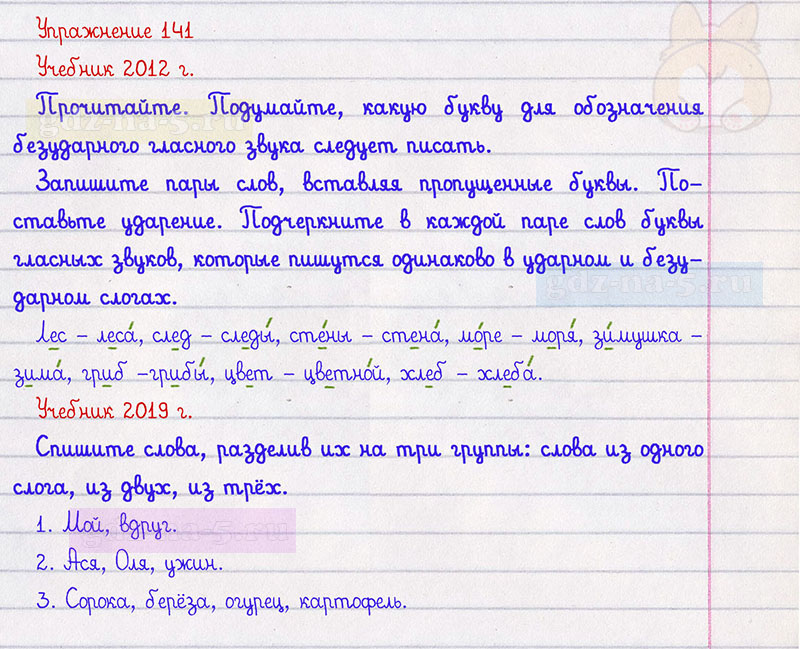 Упражнение 141
Учебник 2012 г.
Прочитайте. Подумайте, какую букву для обозначения
безударного гласного звука следует писать.
Запишите пары слов, вставляя пропущенные буквы. По-
ставьте ударение. Подчеркните в каждой паре слов буквы
гласных звуков, которые пишутся одинаково в ударном и безу-
дарном слогах.
Лес – леса́, след – следы́, сте́ны – стена́, мо́ре – моря́, зи́мушка –
зима́, гриб –грибы́, цвет – цветно́й, хлеб – хлеба́.
Учебник 2019 г.
Спишите слова, разделив их на три группы: слова из одного
слога, из двух, из трёх.
1. Мой, вдруг.
2. Ася, Оля, ужин.
3. Сорока, берёза, огурец, картофель.
gdz-na-5.ru
gdz-na-5.ru
gdz-na-5.ru